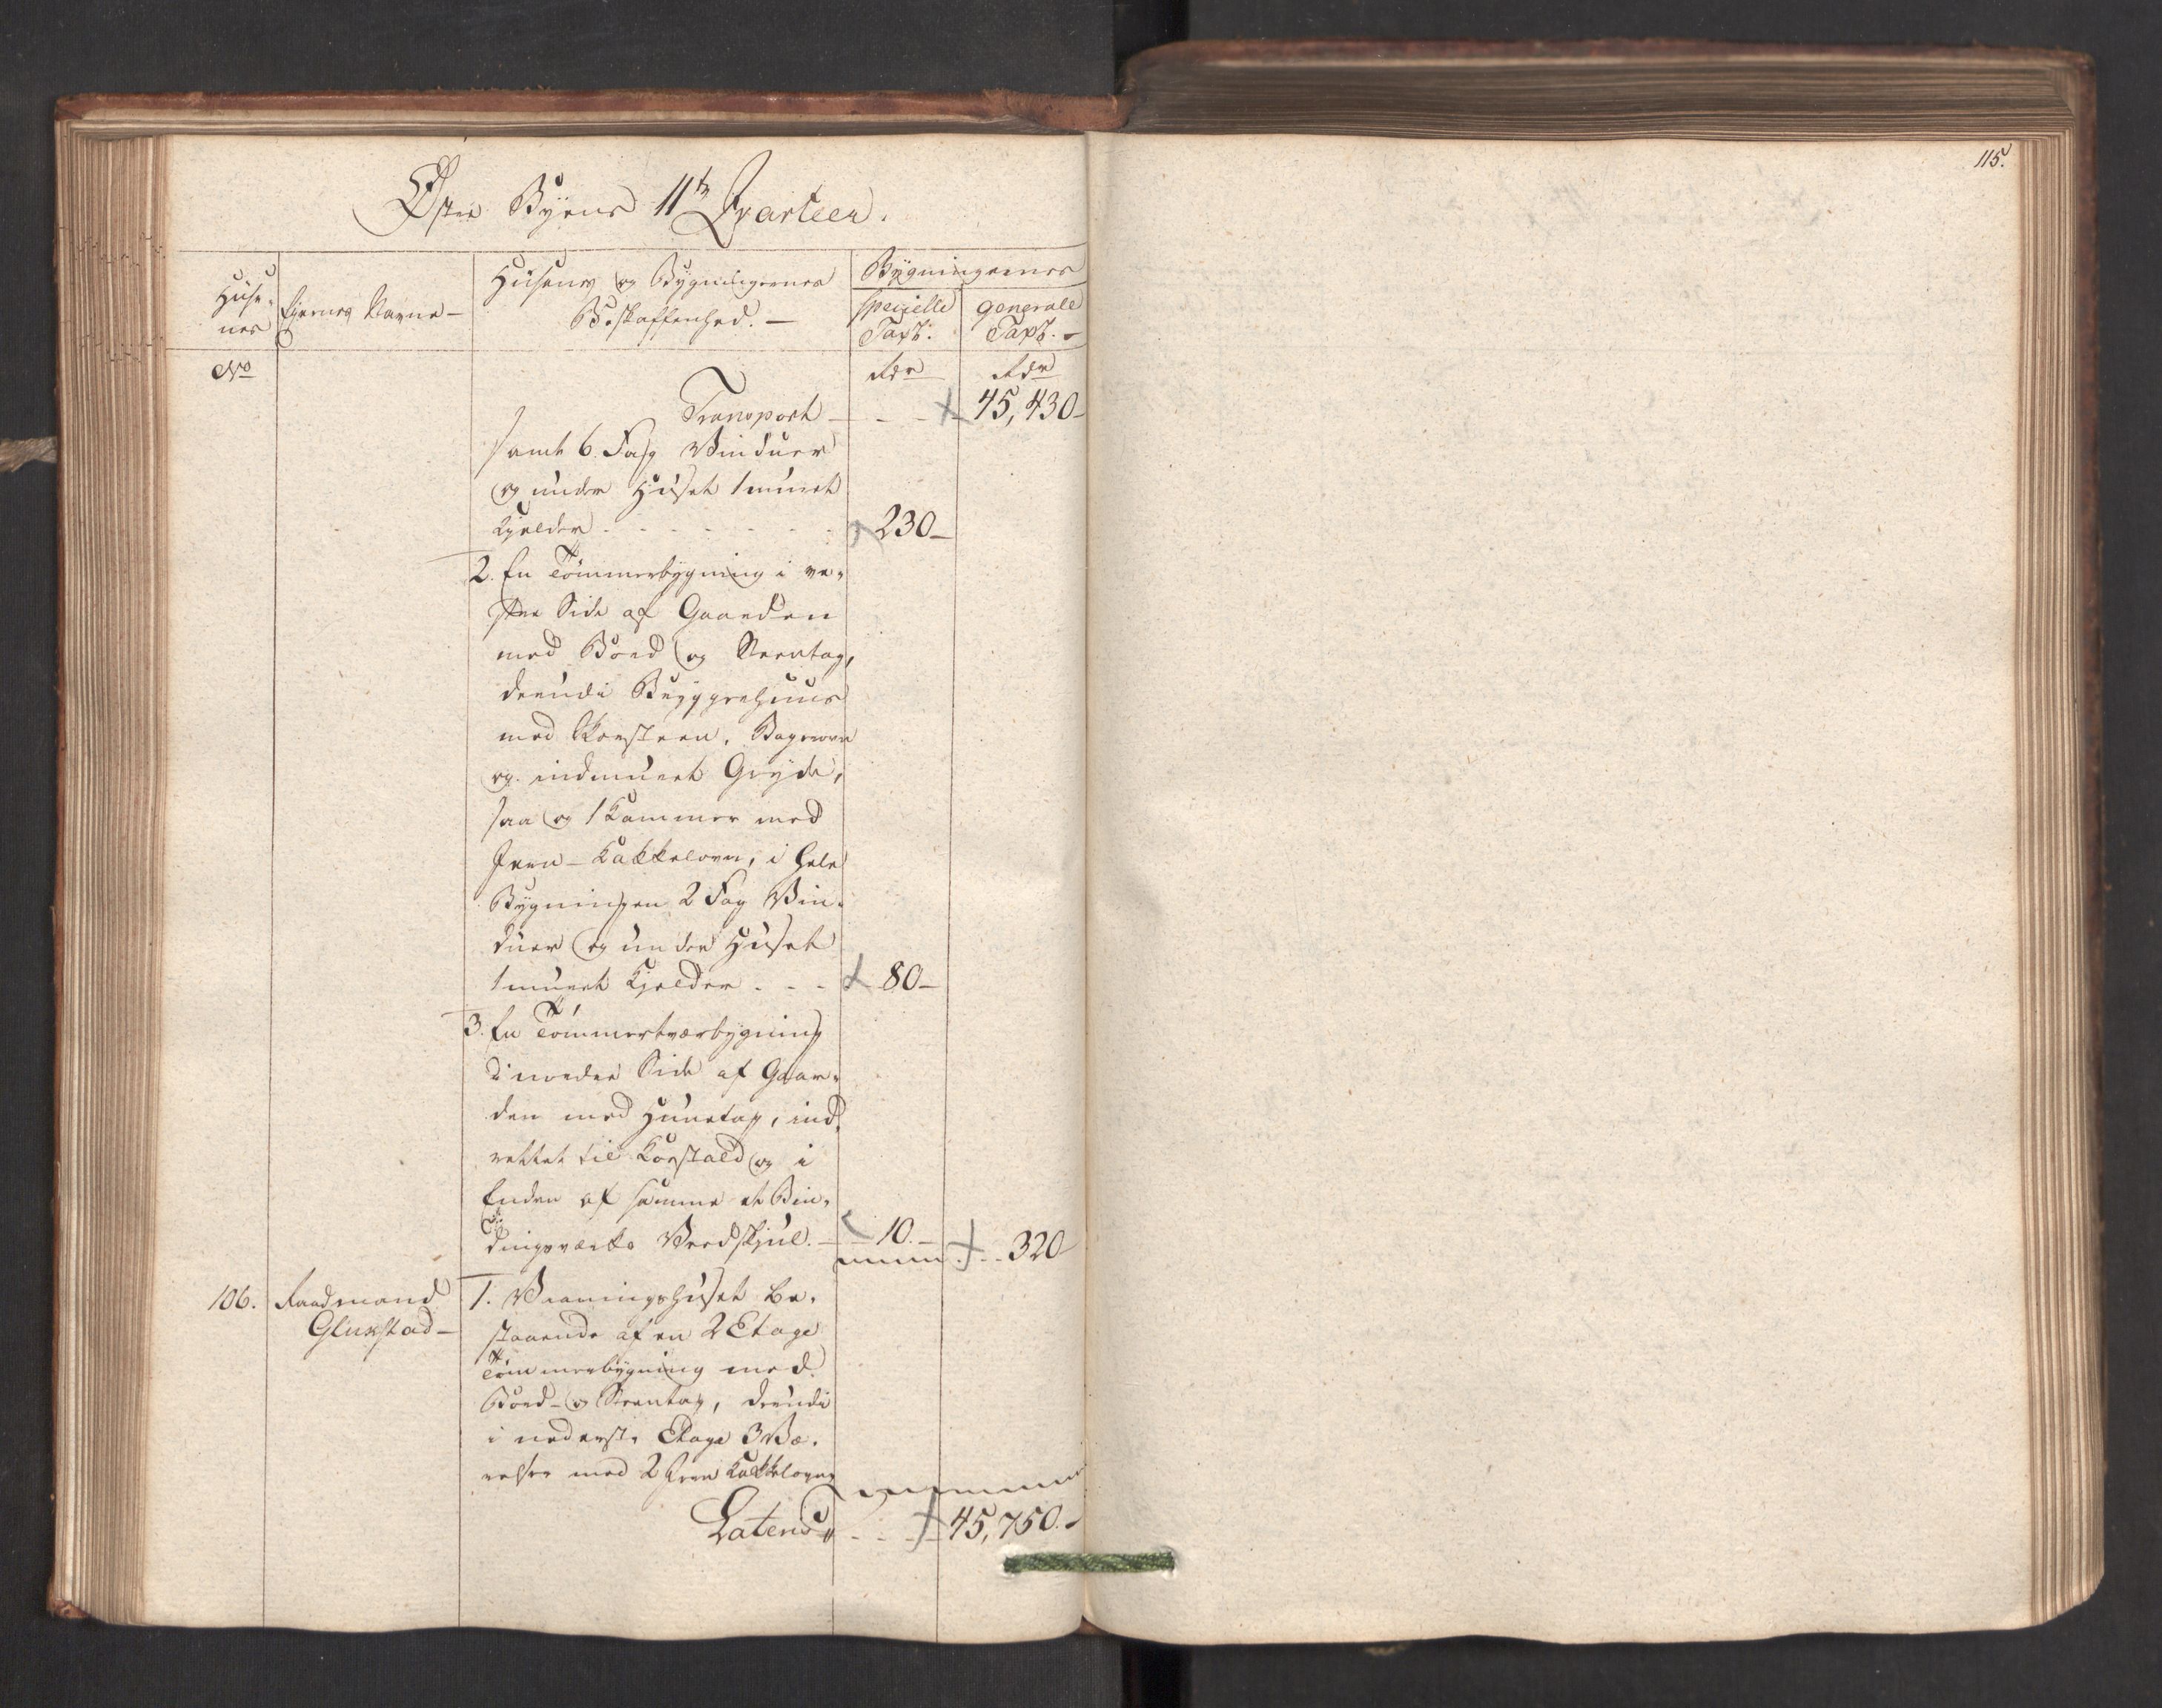 Øster Byens 11te Qvarteer.
Huse-
nes
Eiernes Navne -
Husenes og Bygningernes
Beskaffenhed. -
Bygningernes
specielle
Taxt.
generale
Taxt. -
No
Rdr
Rdr
Transport - - - 45,430 -
samt 6. Fag Vinduer
og under Huset 1 muret
Kjelder - - - - - - 230 -
2. En Tømmerbygning i ve-
stre Side af Gaarden
med Bord og Steentag,
derudi Bryggerhuus
med Skorsteen, Bagerovn
og indmuret Gryde,
saa og 1 Kammer med
Jern-Kakkelovn, i hele
Bygningen 2 Fag Vin-
duer og under Huset
1 muret Kjelder - - - 80 -
3. En Tømmertværbygning
i nordre Side af Gaar-
den med Huuetag, ind-
rettet til Koestald og i
Enden af samme et Bin-
dingsværks Vedskjul. - 10. - 320
106. Raadmand
Gluxstad -
1. Vaaningshuset be-
staaende af en 2 Etage
Tømmerbygning med
Bord- og Steentag, derudi
i nederste Etage 3 Væ-
relser med 2 Jern Kakkelovne
Lateris - - - 45,750. -
115.